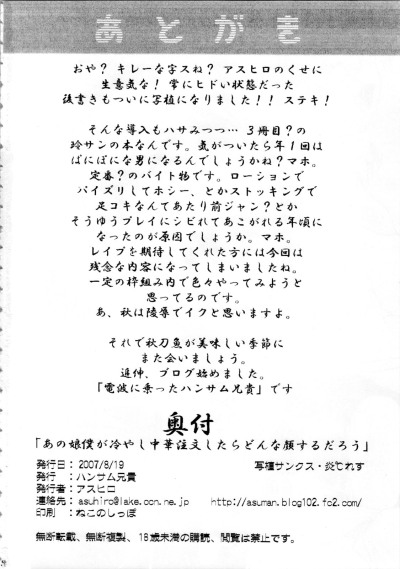 あとがき
おや？ キレーな字スね？ アスヒロのくせに
生意気な！ 常にヒドい状態だった
後書きもついに写植になりました！！ ステキ！
そんな導入もハサみつつ… 3冊目？の
玲サンの本なんです。気がついたら年1回は
ぱにぱにな男になるんでしょうかね？マホ。
定番？のバイト物です。ローションで
パイズリしてホシー、とかストッキングで
足コキなんてあたり前ジャン？とか
そうゆうプレイにシビれてあこがれる年頃に
なったのが原因でしょうか。マホ。
レイプを期待してくれた方には今回は
残念な内容になってしまいましたね。
一定の枠組み内で色々やってみようと
思ってるのです。
あ、秋は陵辱でイクと思いますよ。
それで秋刀魚が美味しい季節に
また会いましょう。
追伸、ブログ始めました。
「電波に乗ったハンサム兄貴」です
奥付
「あの娘僕が冷やし中華注文したらどんな顔するだろう」
発行日：2007/8/19
写植サンクス・炎じぇす
発行　：ハンサム兄貴
発行者：アスヒロ
連絡先：asuhiro@lake.ocn.ne.jp http://asuman.blog102.fc2.com/
印刷　：ねこのしっぽ
無断転載、無断複製、18歳未満の購読、閲覧は禁止です。